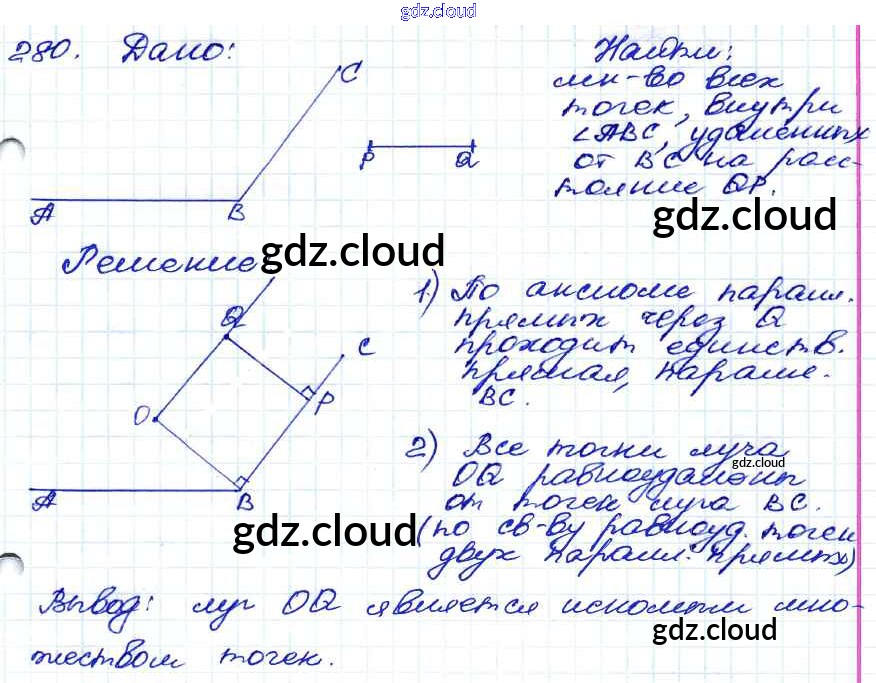 gdz.cloud
280. Дано:
C
A
B
P Q
Найти:
мн-во всех
точек, внутри
∠ABC, удаленных
от BC на расс-
тояние QP.
gdz.cloud
Решение
gdz.cloud
Q
C
O
P
A
B
1) По аксиоме паралл.
прямых через Q
проходит единств.
прямая, паралле.
BC.
2) Все точки луча
gdz.cloud
OQ равноудалены
от точек луча BC.
(по св-ву равноуд. точек
двух паралл. прямых)
gdz.cloud
Вывод: луч OQ является искомым мно-
жеством точек.
gdz.cloud